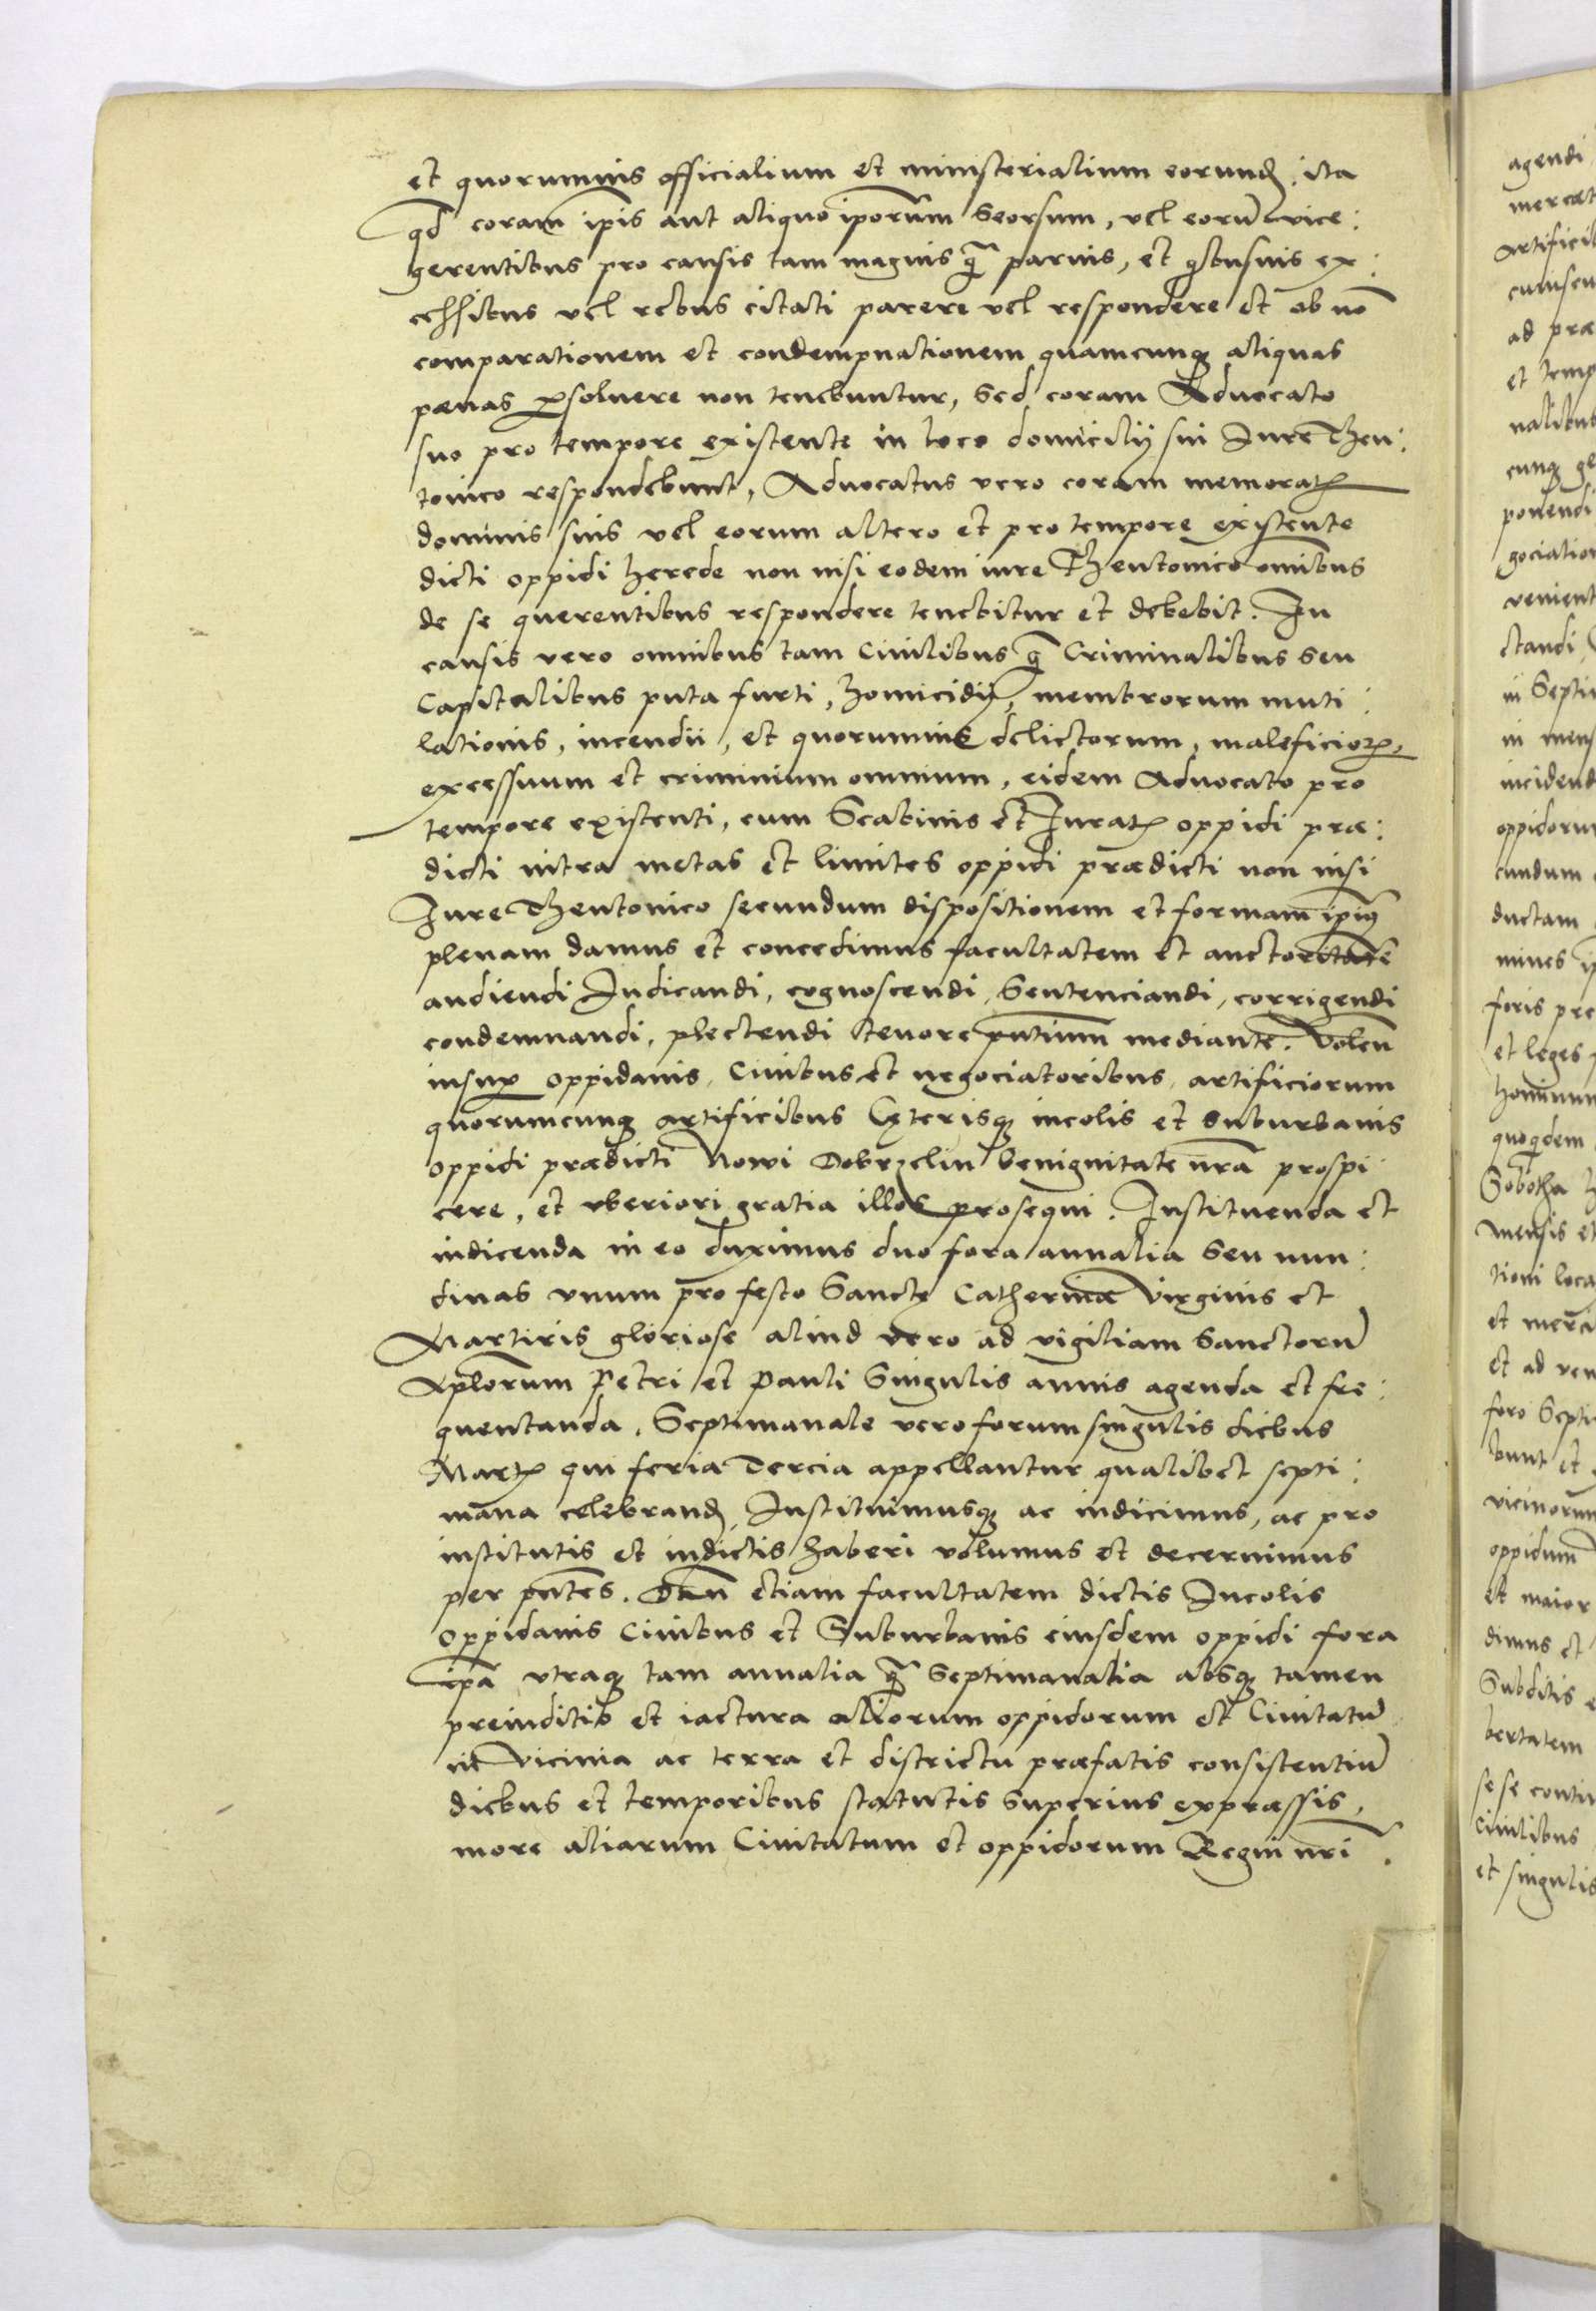 et quorumuis officialium et ministerialium eorund. ita
qd coram ipis aut aliquo iporum seorsum, vel eorū vice:
gerentibus pro causis tam magnis q̄ paruis, et qbusuis ex:
cessibus vel rebus citati parere vel respondere et ob nō
comparationem et condempnationem quamcunq aliquas
pænas psoluere non tenebuntur, Sed coram Aduocato
suo pro tempore existente in loco domicilij sui Iure Theu:
tonico respondebunt, Aduocatus vero coram memorat
dominis suis vel eorum altero et pro tempore existente
dicti oppidi herede non nisi eodem iure Theutonico omibus
de se querentibus respondere tenebitur et debebit. In
causis vero omnibus tam Ciuilibus q̄ Criminalibus seu
Capitalibus puta furti, homicidij, membrorum muti:
lationis, incendii, et quorumuis delictorum, maleficior,
excessuum et criminium omnium, eidem Aduocato pro
tempore existenti, cum Scabinis et Iurat oppidi præ:
dicti intra metas et limites oppidi prædicti non nisi
Iure Theutonico secundum dispositionem et formam ipius
plenam damus et concedimus facultatem et auctoritatē
audiendi Iudicandi, cognoscendi, Sentenciandi, corrigendi
condemnandi, plectendi tenore pntium mediante. Volen
insup oppidanis, Ciuibus et negociatoribus, artificiorum
quorumcunq artificibus Cęterisq incolis et suburbanis
oppidi prædicti Nowi Dobrzelin benignitate nrā prospi:
cere, et vberiori gratia illos prosequi. Instituenda et
indicenda in eo duximus duo fora annalia seu nun:
dinas vnum pro festo Sanctę Catherinæ Virginis et
Martiris gloriose aliud vero ad vigiliam Sanctorū
Aplorum Petri et Pauli Singulis annis agenda et fre:
quentanda, Septimanale vero forum singulis diebus
Mart qui feria Tercia appellantur qualibet septi:
mana celebrand, Instituimusq ac indicimus, ac pro
institutis et indictis haberi volumus et decernimus
per pntes. Dan etiam facultatem dictis Incolis
Oppidanis Ciuibus et Suburbanis eiusdem oppidi fora
ipa vtraq tam annalia q̄ Septimanalia absq tamen
preiuditio et iactura aliorum oppidorum et Ciuitatū
in vicinia ac terra et districtu præfatis consistentiū
diebus et temporibus statutis superius expræssis,
more aliarum Ciuitatum et oppidorum Regni nri.
agendi
mercat
artificib
cuiuscu
ad præ
et temp
nalibus
cunq ge
ponendi
gociation
venient
ctandi
in Septi
in mens
incidend
oppidorum
cundum
ductam
mines ip
foris pre
et leges
hominum
quoqdem
Sobotha
mensis et
tioni loca
et merci
et ad ven
foro Septi
bunt et
vicinorum
oppidum
et maior
dimus et
Subditis e
bertatem
sese contu
Ciuilibus
et singulis